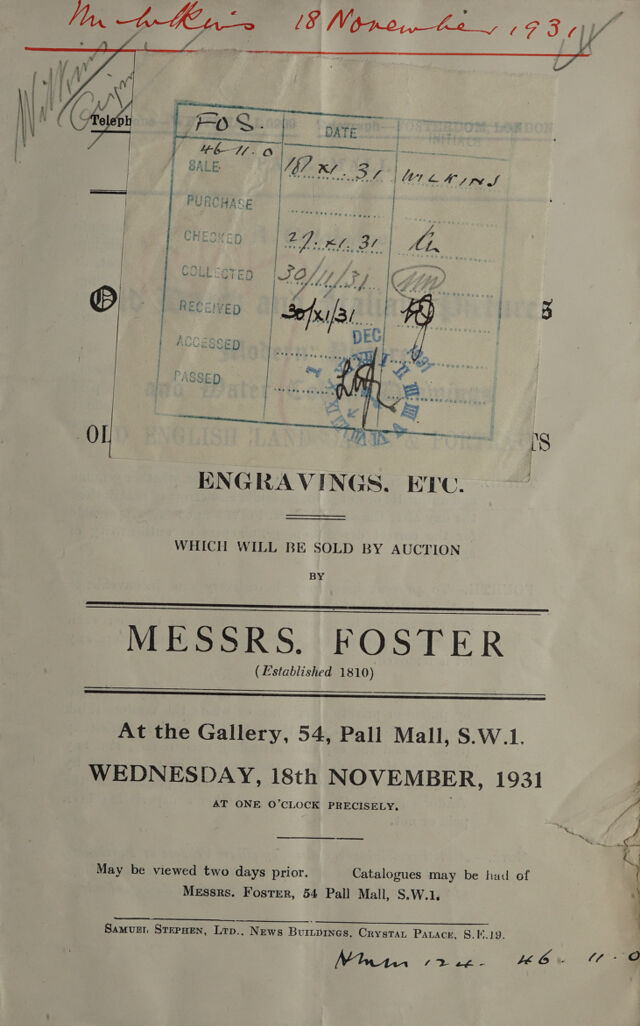 18 November 1931
Wilkins
Teleph
FOS.
DATE
INITIALS
46-11-0
SALE 18.XI.31 WILKINS
PURCHASE
CHECKED 27.XI.31
COLLECTED 30/11/31
RECEIVED 30/XI/31
ACCESSED
DEC 1931
PASSED
OL
TS
ENGRAVINGS, ETC.
WHICH WILL BE SOLD BY AUCTION
BY
MESSRS. FOSTER
(Established 1810)
At the Gallery, 54, Pall Mall, S.W.1.
WEDNESDAY, 18th NOVEMBER, 1931
AT ONE O'CLOCK PRECISELY.
May be viewed two days prior. Catalogues may be had of
MESSRS. FOSTER, 54 Pall Mall, S.W.1.
SAMUEL STEPHEN, LTD., NEWS BUILDINGS, CRYSTAL PALACE, S.E.19.
124. 46-11-0